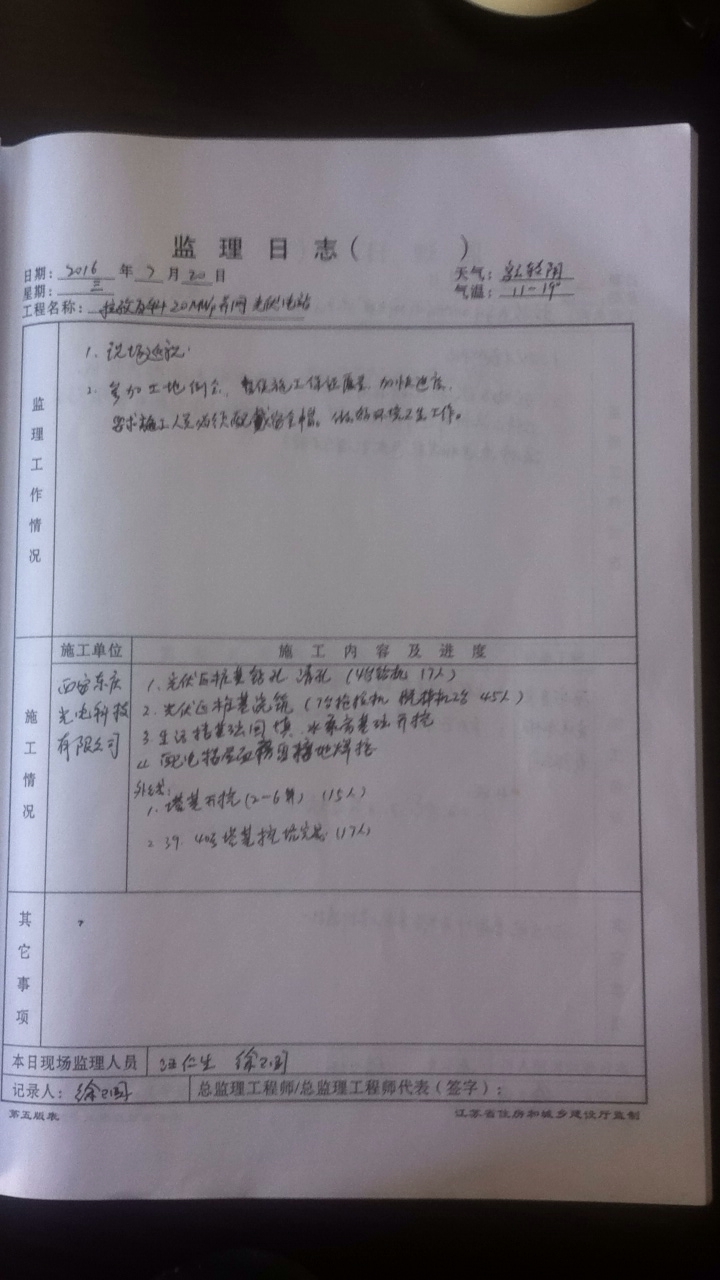 监理日志（ ）
日期：2016年7月20日
天气：多转阴
星期：三
气温：11-19°
工程名称：20MWp并网光伏电站
监理工作情况
1. 现场巡视.
2. 参加工地例会，施工保证质量，加快进度，
要求施工人员必须配戴安全帽。做好环境卫生工作。
施工单位
施工内容及进度
施工情况
西安东庆
光电科技
有限公司
1. 光伏区桩基钻孔 清孔（4台钻机 17人）
2. 光伏区桩基浇筑（45人）
3. 生活楼基础回填、水泵房基础开挖
4. 配电楼屋面接地焊接
外线：
1. 塔基开挖（2-6#）（15人）
2. 39. 40号塔基挖坑完成（17人）
其它事项
本日现场监理人员
汪仁生 徐卫国
记录人：徐卫国
总监理工程师/总监理工程师代表（签字）：
第五版表
江苏省住房和城乡建设厅监制